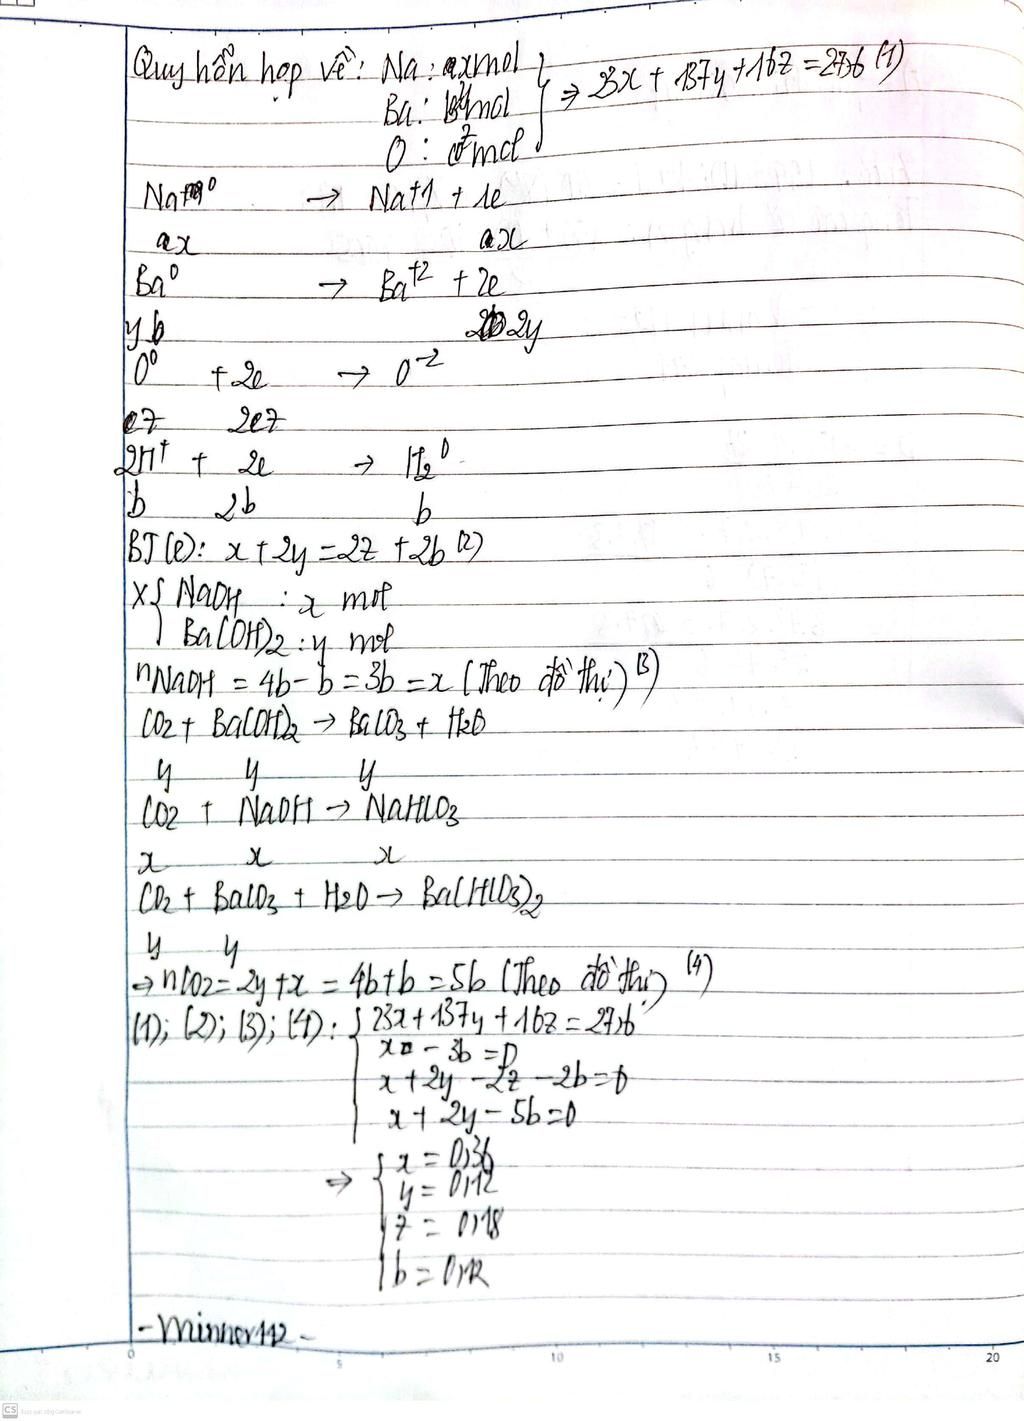 Quy hỗn hợp về: Na: x mol
Ba: y mol
O: z mol
⇒ 23x + 137y + 16z = 27,6 (1)
Na⁰ → Na+1 + 1e
x x
Ba⁰ → Ba+2 + 2e
y 2y
O⁰ + 2e → O-2
z 2z
2H+ + 2e → H₂⁰
b 2b b
BT(e): x + 2y = 2z + 2b (2)
X { NaOH : x mol
Ba(OH)₂ : y mol
nNaOH = 4b - b = 3b = x (Theo đồ thị) (3)
CO₂ + Ba(OH)₂ → BaCO₃ + H₂O
y y y
CO₂ + NaOH → NaHCO₃
x x x
CO₂ + BaCO₃ + H₂O → Ba(HCO₃)₂
y y
⇒ nCO₂ = 2y + x = 4b + b = 5b (Theo đồ thị) (4)
(1); (2); (3); (4): { 23x + 137y + 16z = 27,6
x - 3b = 0
x + 2y - 2z - 2b = 0
x + 2y - 5b = 0
⇒ { x = 0,36
y = 0,12
z = 0,18
b = 0,12
- Minner112 -
0 5 10 15 20
CS